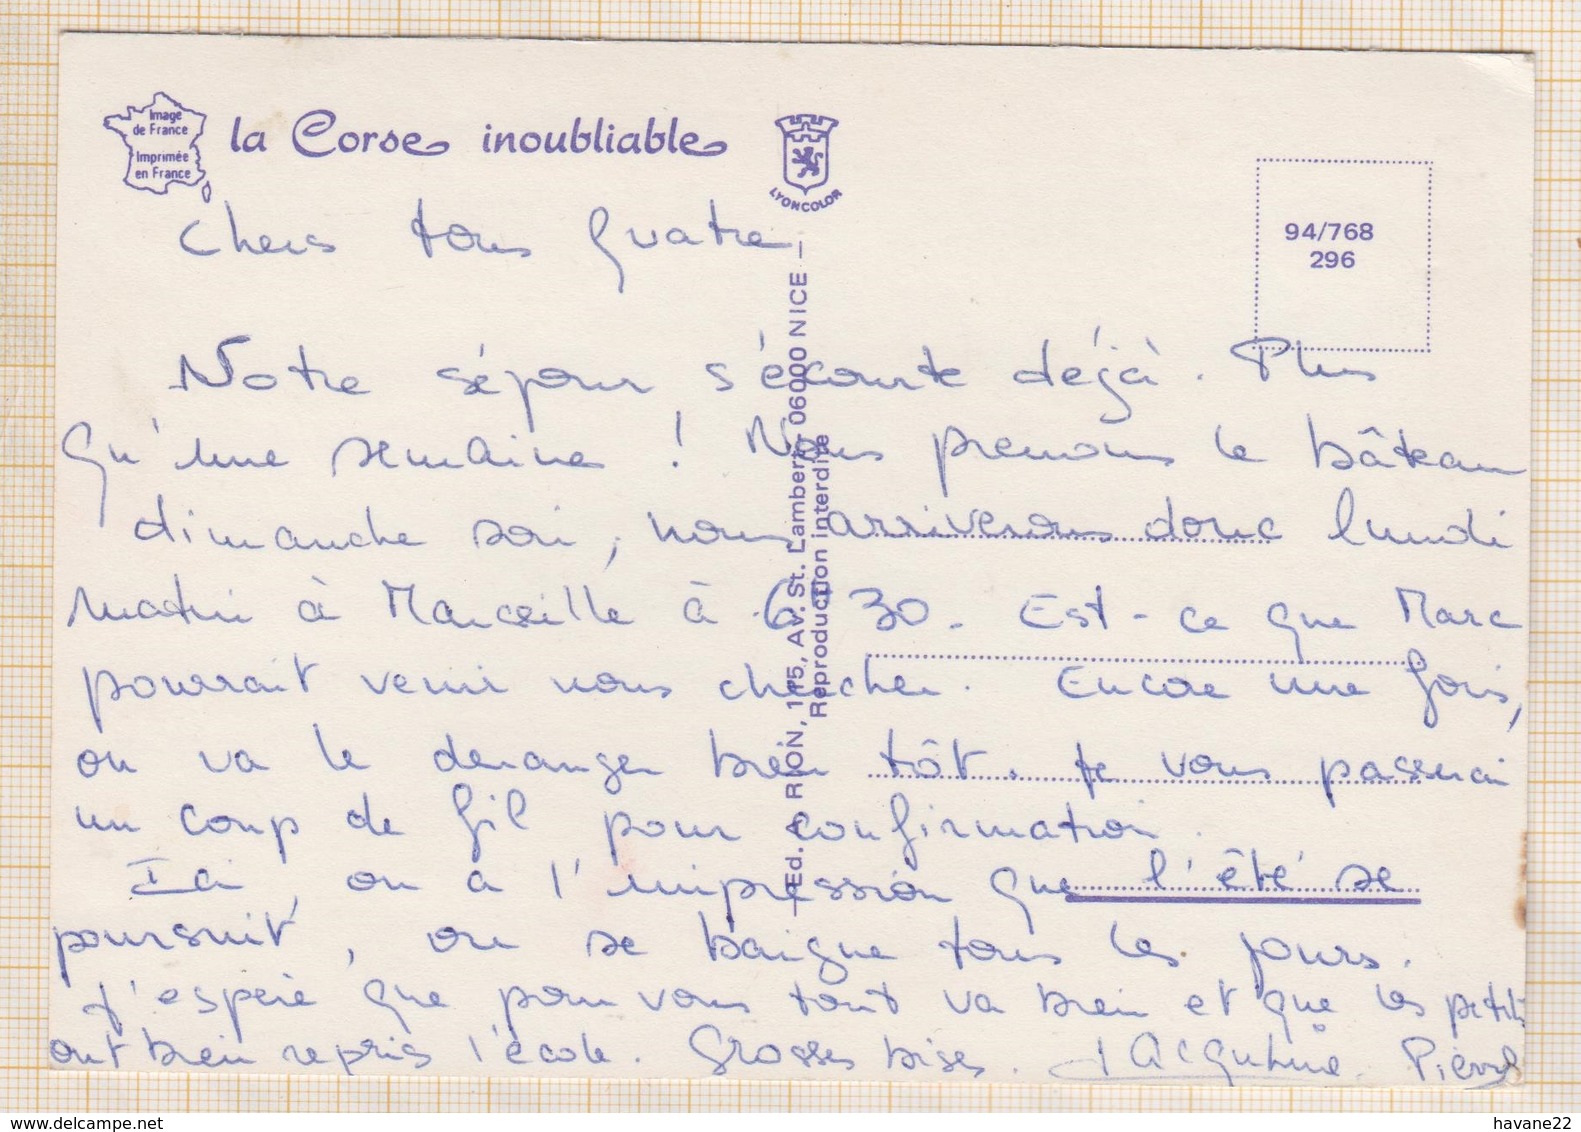 Image
de France
Imprimée
en France
la Corse inoubliable
LYONCOLOR
94/768
296
Ed. RION, 175, AV. St. Lambert, 06000 NICE
Reproduction interdite
Chers tous Quatre,
Notre séjour s'écourte déjà. Plus
qu'une semaine ! Nous prenons le bâteau
dimanche soir, nous arriverons donc lundi
matin à Marseille à 6h 30. Est-ce que Marc
pourrait venir nous chercher. Encore une fois,
on va le déranger bien tôt. Je vous passerai
un coup de fil pour confirmation.
Ici, on a l'impression que l'été se
poursuit, on se baigne tous les jours.
J'espère que pour vous tout va bien et que les petits
ont bien repris l'école. Grosses bises. Jacqueline. Pierre
havane22